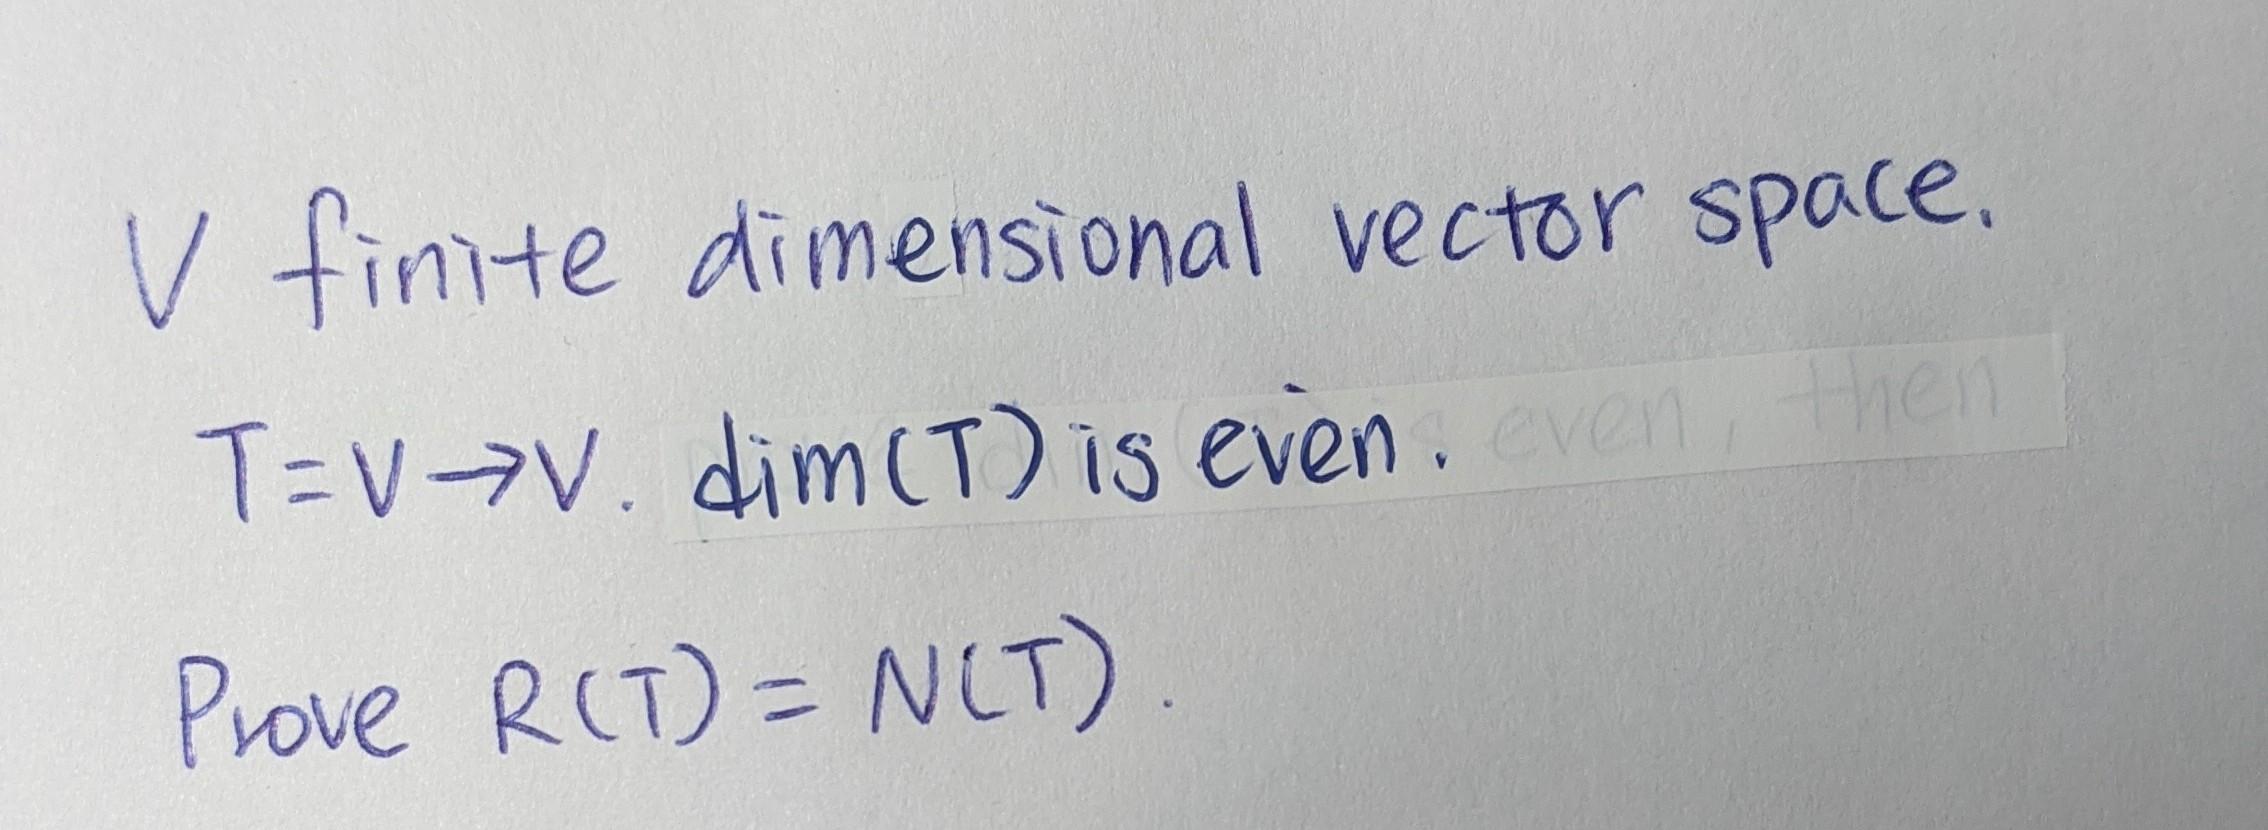 V finite dimensional vector space.
T=V→V. dim(T) is even. even, then
Prove R(T) = N(T).